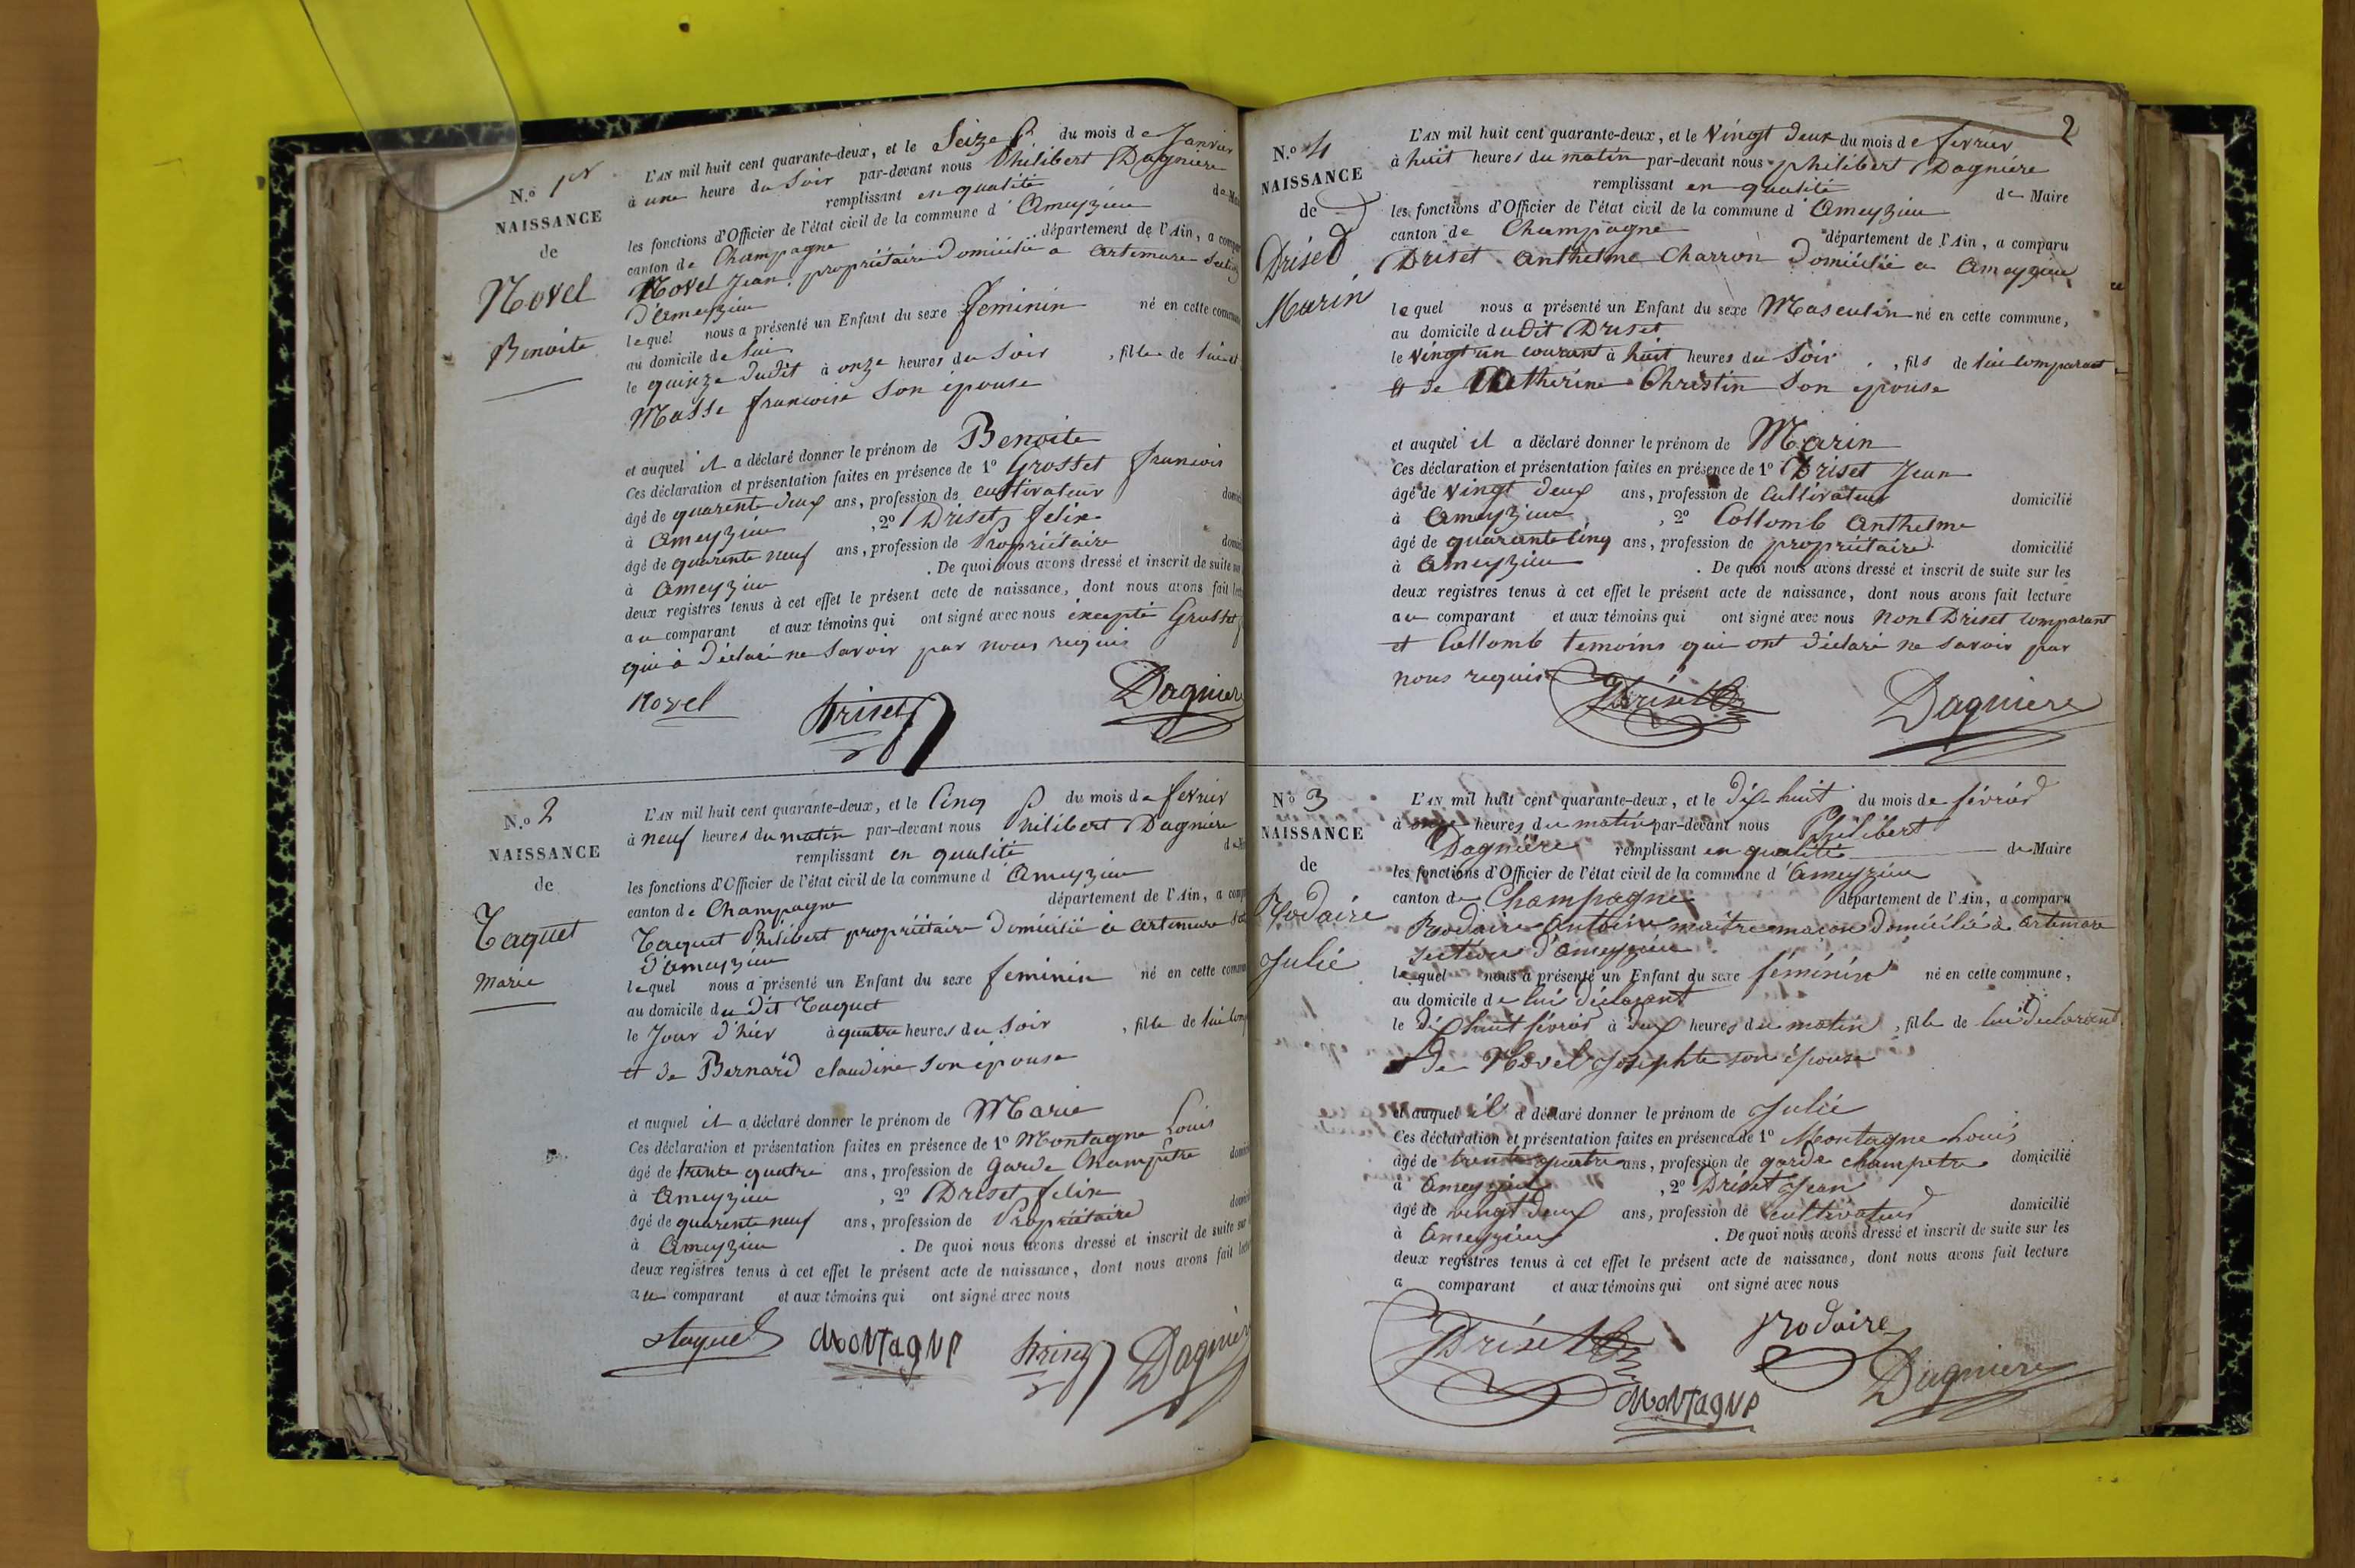 N.º 1er
NAISSANCE
de
Novel
Benoite
L'AN mil huit cent quarante-deux, et le Seize du mois de Janvier
à une heure du Soir par-devant nous Philibert Dagnière
remplissant en qualité de
les fonctions d'Officier de l'état civil de la commune d'Ameyzieu
canton de Champagne département de l'Ain, a
Novel Jean, propriétaire domicilié a Artemare
d'Ameyzieu
lequel nous a présenté un Enfant du sexe feminin né en cette
au domicile de lui
le quinze dudit à onze heures du Soir , fille de lui et
Masse francoise Son épouse
et auquel il a déclaré donner le prénom de Benoite
Ces déclaration et présentation faites en présence de 1º Grosset francois
âgé de quarente deux ans, profession de cultivateur
à Ameyzieu , 2º Driset felix
âgé de quarente neuf ans, profession de Propriétaire
à Ameyzieu . De quoi nous avons dressé et inscrit de suite
deux registres tenus à cet effet le présent acte de naissance, dont nous avons fait
au comparant et aux témoins qui ont signé avec nous excepté Grosset
qui a déclaré ne Savoir par nous requis
Novel Driset Dagnière
N.º 2
NAISSANCE
de
Taquet
Marie
L'AN mil huit cent quarante-deux, et le Cinq du mois de fevrier
à neuf heures du matin par-devant nous Philibert Dagnière
remplissant en qualité
les fonctions d'Officier de l'état civil de la commune d'Ameyzieu
canton de Champagne département de l'Ain, a
Taquet Philibert propriétaire domicilié à Artemare
d'Ameyzieu
lequel nous a présenté un Enfant du sexe feminin né en cette
au domicile du dit Taquet
le Jour d'hier à quatre heures du Soir , fille de lui
et de Bernard claudine Son épouse
et auquel il a déclaré donner le prénom de Marie
Ces déclaration et présentation faites en présence de 1º Montagne Louis
âgé de trente quatre ans, profession de Garde Champêtre
à Ameyzieu , 2º Driset felix
âgé de quarente neuf ans, profession de Propriétaire
à Ameyzieu . De quoi nous avons dressé et inscrit de suite sur
deux registres tenus à cet effet le présent acte de naissance, dont nous avons fait
au comparant et aux témoins qui ont signé avec nous
taquet MoNTagNe Driset Dagnière
2
N.º 4
NAISSANCE
de
Driset
Marin
L'AN mil huit cent quarante-deux, et le Vingt deux du mois de fevrier
à huit heures du matin par-devant nous philibert Dagnière
remplissant en qualité de Maire
les fonctions d'Officier de l'état civil de la commune d'Ameyzieu
canton de Champagne département de l'Ain, a comparu
Driset Anthelme Charron Domicilié a Ameyzieu
lequel nous a présenté un Enfant du sexe Masculin né en cette commune,
au domicile dudit Driset
le Vingt un courant à huit heures du Soir , fils de lui comparant
et de Catherine Christin Son épouse
et auquel il a déclaré donner le prénom de Marin
Ces déclaration et présentation faites en présence de 1º Driset Jean
âgé de Vingt deux ans, profession de Cultivateur domicilié
à Ameyzieu , 2º Collomb Anthelme
âgé de quarante cinq ans, profession de propriétaire domicilié
à Ameyzieu . De quoi nous avons dressé et inscrit de suite sur les
deux registres tenus à cet effet le présent acte de naissance, dont nous avons fait lecture
au comparant et aux témoins qui ont signé avec nous non Driset comparant
et Collomb temoins qui ont déclaré ne savoir par
nous requis
Driset Dagnière
Nº 3
NAISSANCE
de
Rodaire
Julie
L'AN mil huit cent quarante-deux, et le dix-huit du mois de février
à onze heures du matin par-devant nous Philibert
Dagnière remplissant en qualité de Maire
les fonctions d'Officier de l'état civil de la commune d'Ameyzieu
canton de Champagne département de l'Ain, a comparu
Rodaire Antoine maître maçon domicilié à Artemare
section d'Ameyzieu
lequel nous a présenté un Enfant du sexe féminin né en cette commune,
au domicile de lui déclarant
le dix huit février à deux heures du matin , fille de lui déclarant
de Novel Josephte son épouse
et auquel il a déclaré donner le prénom de Julie
Ces déclaration et présentation faites en présence de 1º Montagne Louis
âgé de trente quatre ans, profession de garde champetre domicilié
à Ameyzieu , 2º Driset Jean
âgé de vingt deux ans, profession de cultivateur domicilié
à Ameyzieu . De quoi nous avons dressé et inscrit de suite sur les
deux registres tenus à cet effet le présent acte de naissance, dont nous avons fait lecture
a comparant et aux témoins qui ont signé avec nous
Driset Rodaire
MoNTagNe Dagnière